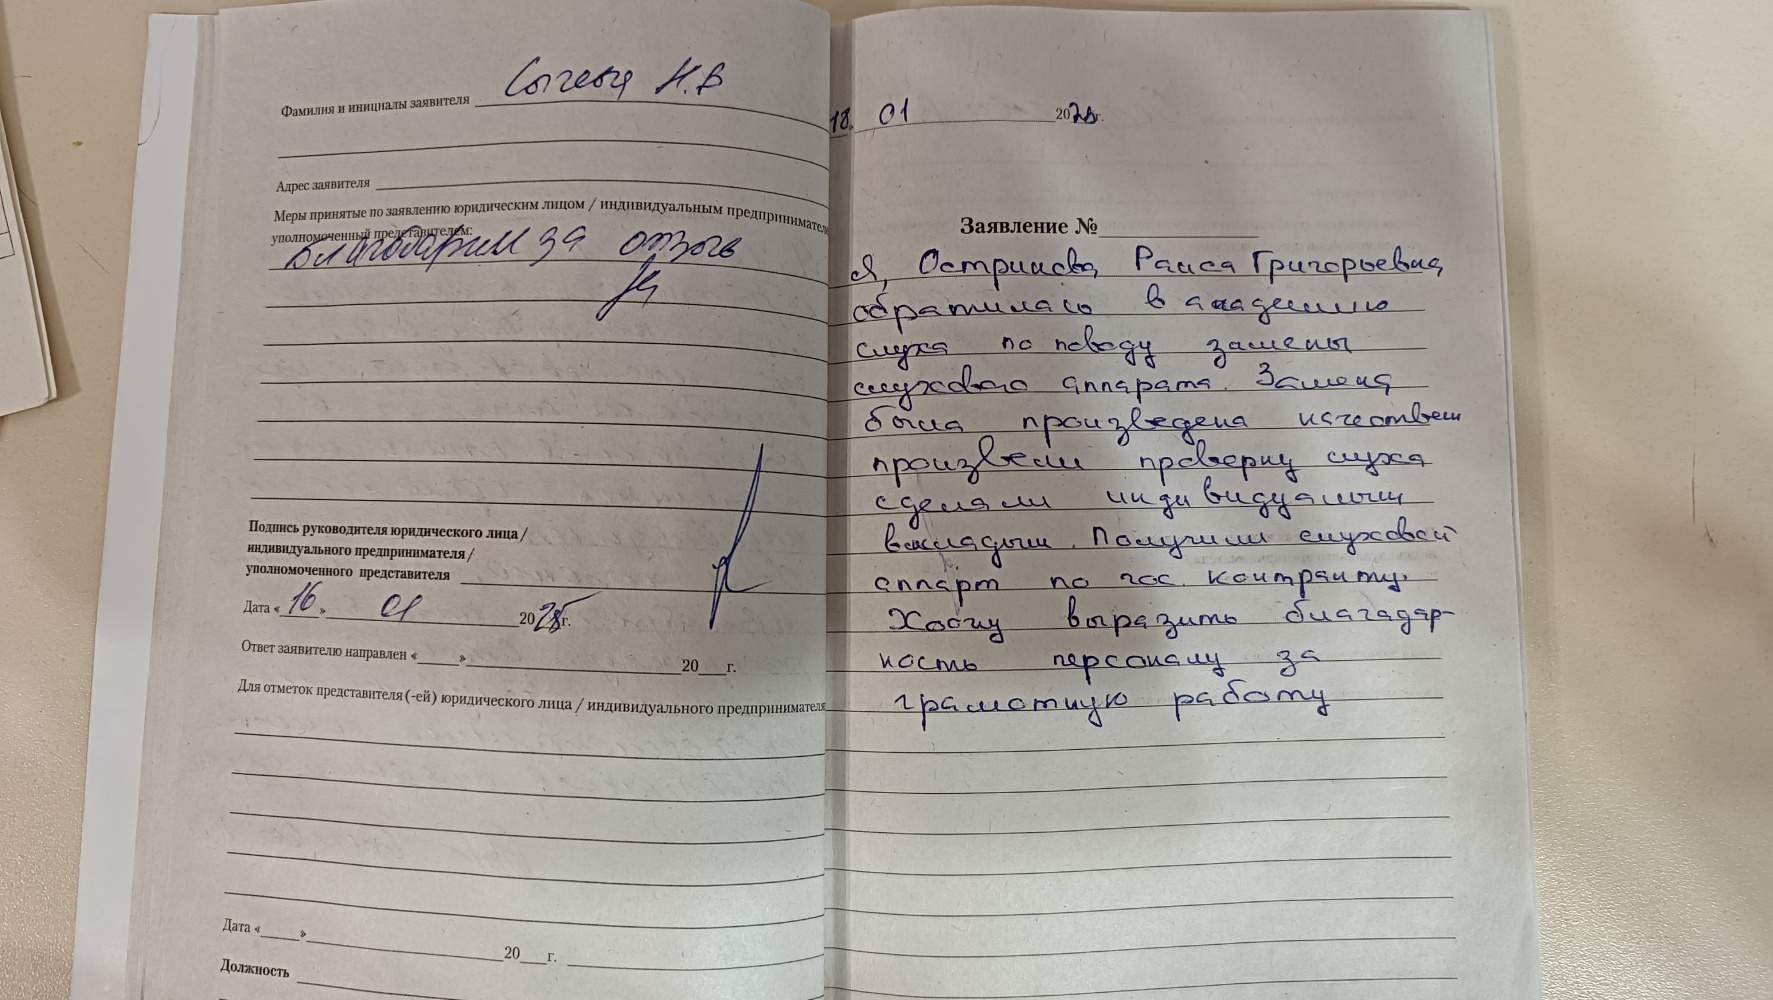 Фамилия и инициалы заявителя Сычева Н.В
Адрес заявителя
Меры принятые по заявлению юридическим лицом / индивидуальным предпринимателе
уполномоченный представителем:
Благодарим за отзыв
Подпись руководителя юридического лица /
индивидуального предпринимателя /
уполномоченного представителя
Дата «16» 01 2025г.
Ответ заявителю направлен «___»___ 20___г.
Для отметок представителя (-ей) юридического лица / индивидуального предпринимателя
Дата «___»___ 20___г.
Должность
18. 01 2025г.
Заявление №
Я, Раиса Григорьевна,
обратилась в академию
слуха по поводу замены
слухового аппарата. Замена
была произведена качествен
произвели проверку слуха
сделали индивидуальный
вкладыш. Получили слуховой
аппарт по гос. контракту.
Хоочу выразить благадар-
ность персоналу за
грамотную работу